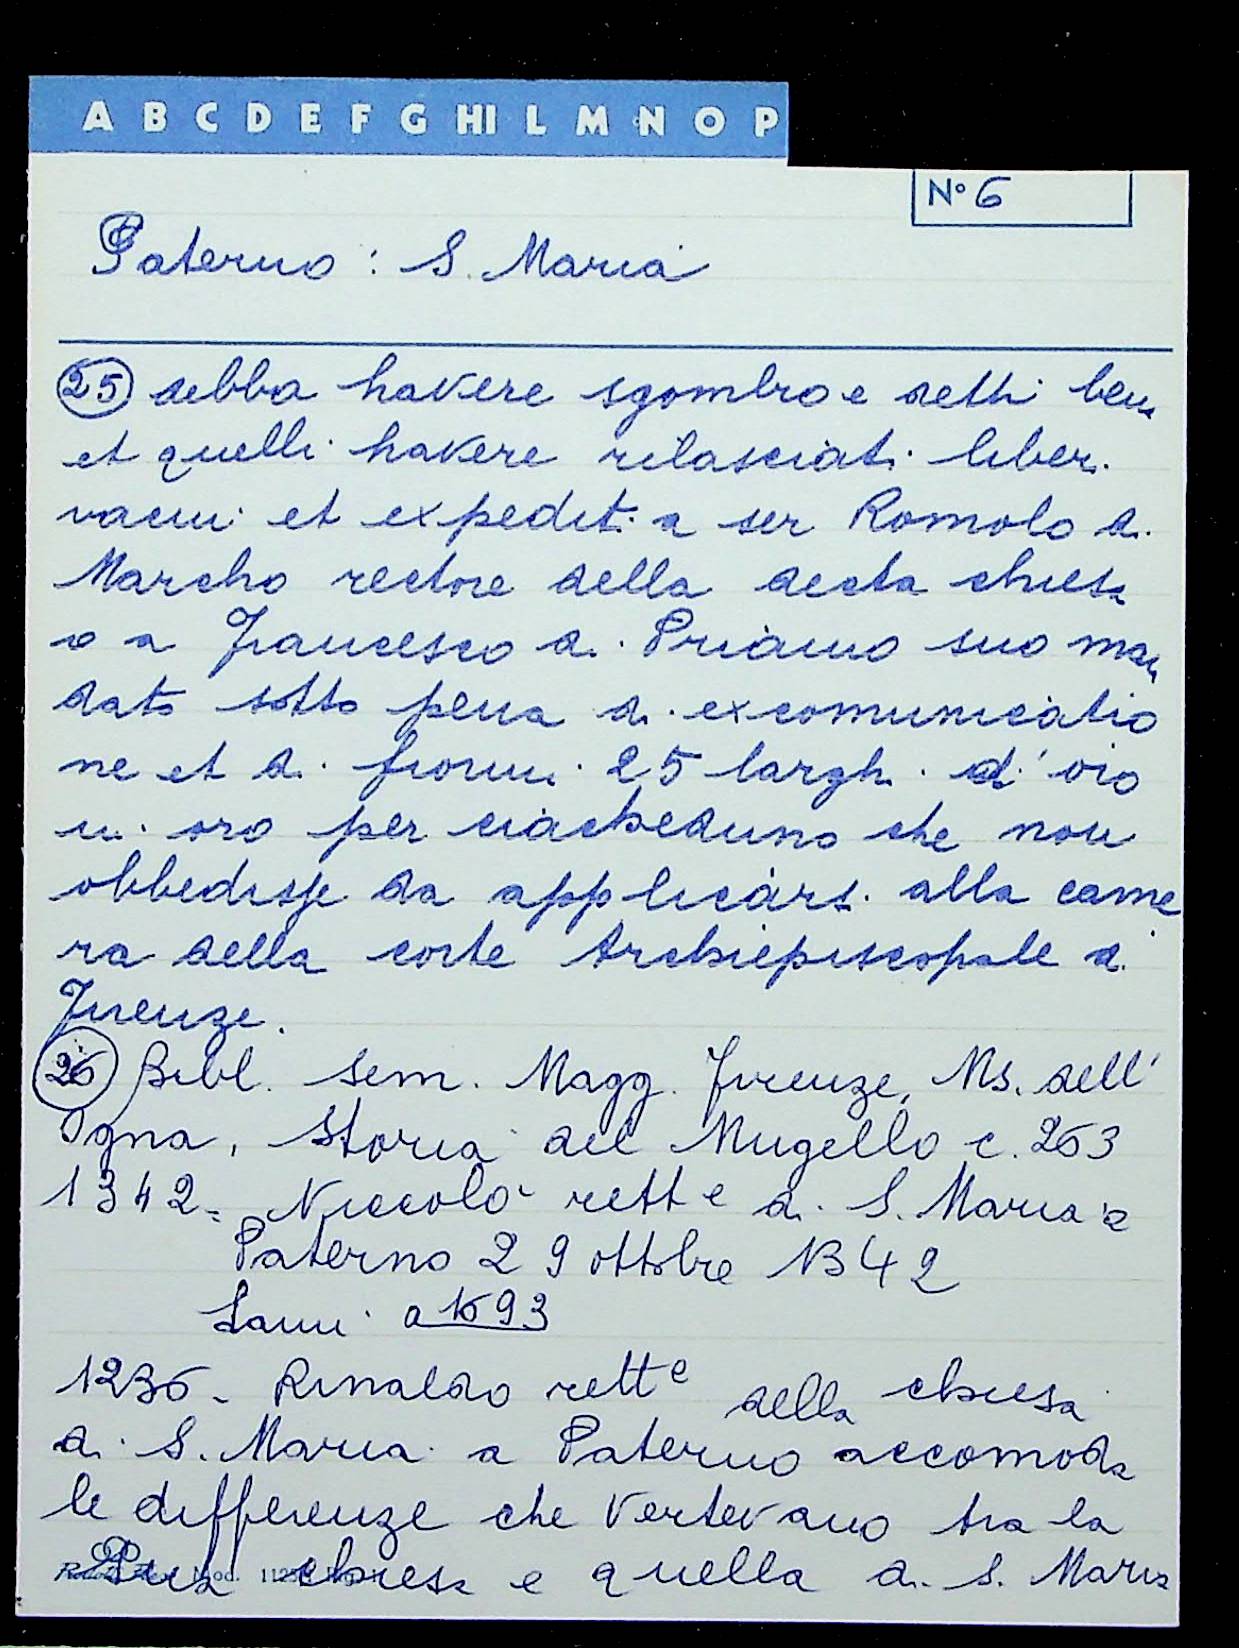 A B C D E F G HI L M N O P
N° 6
Paterno : S. Maria
25 debba havere sgombro e detti beni
et quelli havere rilasciati liberi
vacui et expediti a ser Romolo di
Marcho rectore della decta chiesa
o a Francesco di Priamo suo man
dato sotto pena di excomunicatio
ne et di fiorini 25 larghi d'oro
in oro per ciascheduno che non
obbedisse da applicarsi alla came
ra della corte Archiepiscopale di
Firenze.
26 Bibl. Sem. Magg. Firenze, Ms. dell'
Ogna, Storia del Mugello c. 263
1342 = Niccolò rett e di S. Maria a
Paterno 29 ottobre 1342
Lami a 1693
1236 - Rinaldo rett e della chiesa
di S. Maria a Paterno accomoda
le differenze che vertevano tra la
chiesa e quella di S. Maria